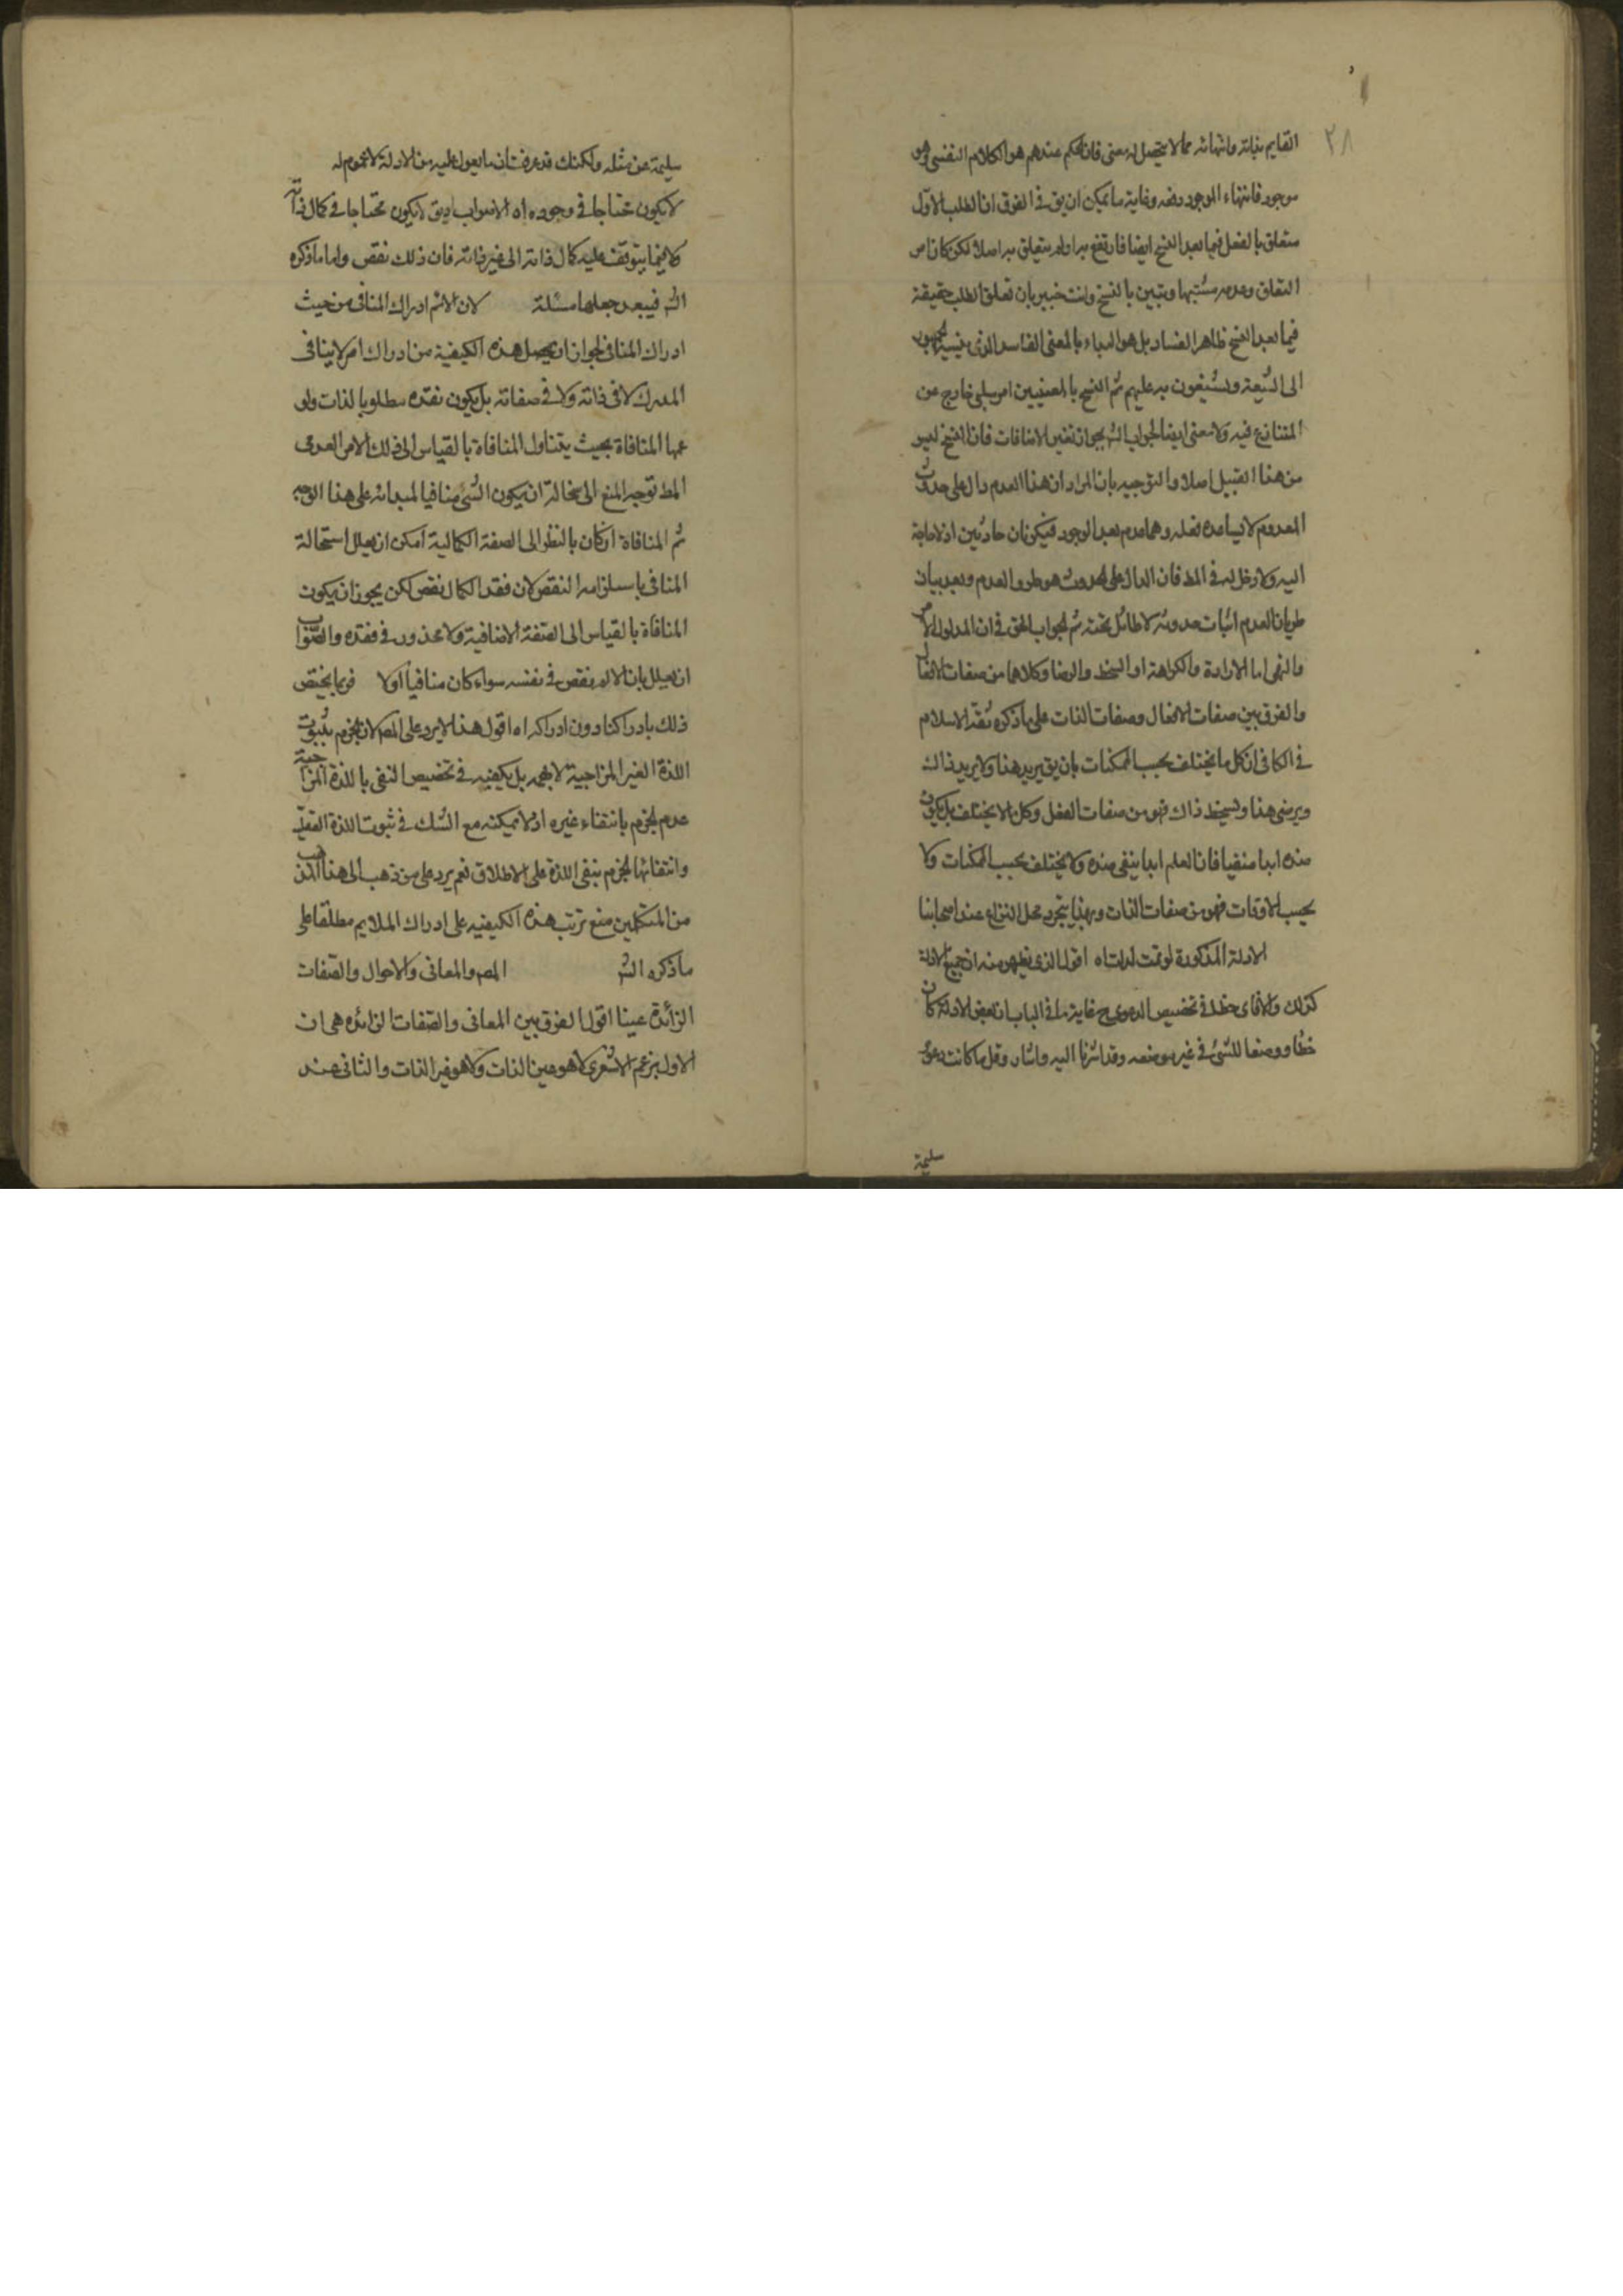 ٢٨
القايم بذاته وانتهائه مما لا يتحصل له معنى فان الحكم عندهم هو الكلام النفسى وهو
موجود فانتهاء الموجود رفعه وغاية ما يمكن ان يق في الفرق ان الطلب الاول
متعلق بالفعل فيما بعد النسخ ايضا فارتفع به او لم يتعلق به اصلا لكن كان امر
التعلق وعدمه مشتبها وتبين بالنسخ وانت خبير بان تعلق الطلب حقيقة
فيما بعد النسخ ظاهر الفساد بل هو البداء بالمعنى الفاسد الذى ينسبه الجمهور
الى الشيعة ويشنعون به عليهم ثم النسخ بالمعنيين امر سلبى خارج عن
المتنازع فيه ولا معنى ايضا لجواب الش بجواز تغير الاضافات فان النسخ ليس
من هذا القبيل اصلا والتوجيه بان المراد ان هذا العدم دال على حدوث
المعدوم لا يساعده نقله وهما عدم بعد الوجود فيكونان حادثين اذ لا حاجة
اليه ولا دخل له في المط فان الدال على الحدوث هو طرو العدم وبعد بيان
طريان العدم اثبات حدوثه لا طائل تحته ثم الجواب الحق في ان المدلول الامر
والنهى اما الارادة والكراهة او السخط والرضا وكلاهما من صفات الافعال
والفرق بين صفات الافعال وصفات الذات على ما ذكره ثقة الاسلام
في الكافى ان كل ما يختلف بحسب الممكنات بان يق يريد هذا ولا يريد ذاك
ويرضى هذا ويسخط ذاك فهو من صفات الفعل وكل ما لا يختلف بل يكون
ضده ابدا منفيا فان العلم ابدا ينفى ضده ولا يختلف بحسب الممكنات ولا
بحسب الاوقات فهو من صفات الذات وبهذا يتحرر محل النزاع عند اصحابنا
الادلة المذكورة لو تمت لدلت اه اقول الذى يظهر منه ان جميع الادلة
كذلك والا فاى خطا في تخصيص الدعوى ح غاية ما في الباب ان بعض الادلة كان
خطا ووضعا للشئ في غير موضعه وقد اشرنا اليه واشار وقل ما كانت دعوى
سليمة
سليمة عن مثله ولكنك قد عرفت ان ما يعول عليه من الادلة لا عموم له
لا يكون محتاجا في وجوده اه الاصواب ان يق لا يكون محتاجا في كمال ذاته
كلا فيما يتوقف عليه كمال ذاته الى غير ذاته فان ذلك نقص واما ما ذكره
الش فيبعد جعلها مسئلة لان الالم ادراك المنافى من حيث
ادراك المنافى لجواز ان يحصل هذه الكيفية من ادراك امر لا ينافى
المدرك لا في ذاته ولا في صفاته بل يكون فقده مطلوبا لذات ولو
عمها المنافاة بحيث يتناول المنافاة بالقياس الى ذلك الامر العدمى
المط توجه المنع الى استحالة ان يكون الشئ منافيا لمبدائه على هذا الوجه
ثم المنافاة ان كان بالنظر الى الصفة الكمالية امكن ان يعلل استحالة
المنافى باستلزامه النقص لان فقد الكمال نقص لكن يجوز ان يكون
المنافاة بالقياس الى الصفة الاضافية ولا محذور في فقده والصواب
ان يعلل بان الالم نقص في نفسه سواء كان منافيا او لا فربما يختص
ذلك بادراكنا دون ادراكه اه اقول هذا لا يرد على المص لانه لم يجزم بثبوت
اللذة الغير المزاجية لا بهمه بل يكفيه في تخصيص النفى باللذة المزاجية
عدم الجزم بانتفاء غيره اذ لا يمكنه مع الشك في ثبوت اللذة العقلية
وانتفائها الجزم بنفى اللذة على الاطلاق نعم يرد على من ذهب الى هذا المذهب
من المتكلمين منع ترتب هذه الكيفية على ادراك الملايم مطلقا على
ما ذكره الش المص والمعانى والاحوال والصفات
الزائدة عينا اقول الفرق بين المعانى والصفات الزائده هى ان
الاول بزعم الاشعرى لا هو عين الذات ولا هو غير الذات والثانى عند